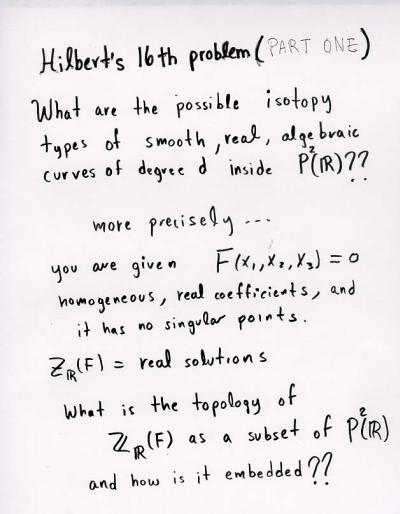 Hilbert's 16th problem (PART ONE)
What are the possible isotopy
types of smooth, real, algebraic
curves of degree d inside P²(ℝ)??
more precisely ...
you are given F(X₁,X₂,X₃) = 0
homogeneous, real coefficients, and
it has no singular points.
Z_ℝ(F) = real solutions
What is the topology of
Z_ℝ(F) as a subset of P²(ℝ)
and how is it embedded??